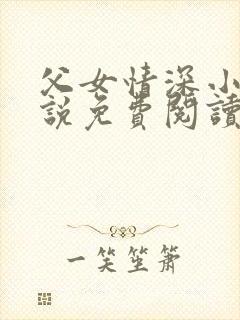 父女情深小
說免費閱讀
一笑坐簫